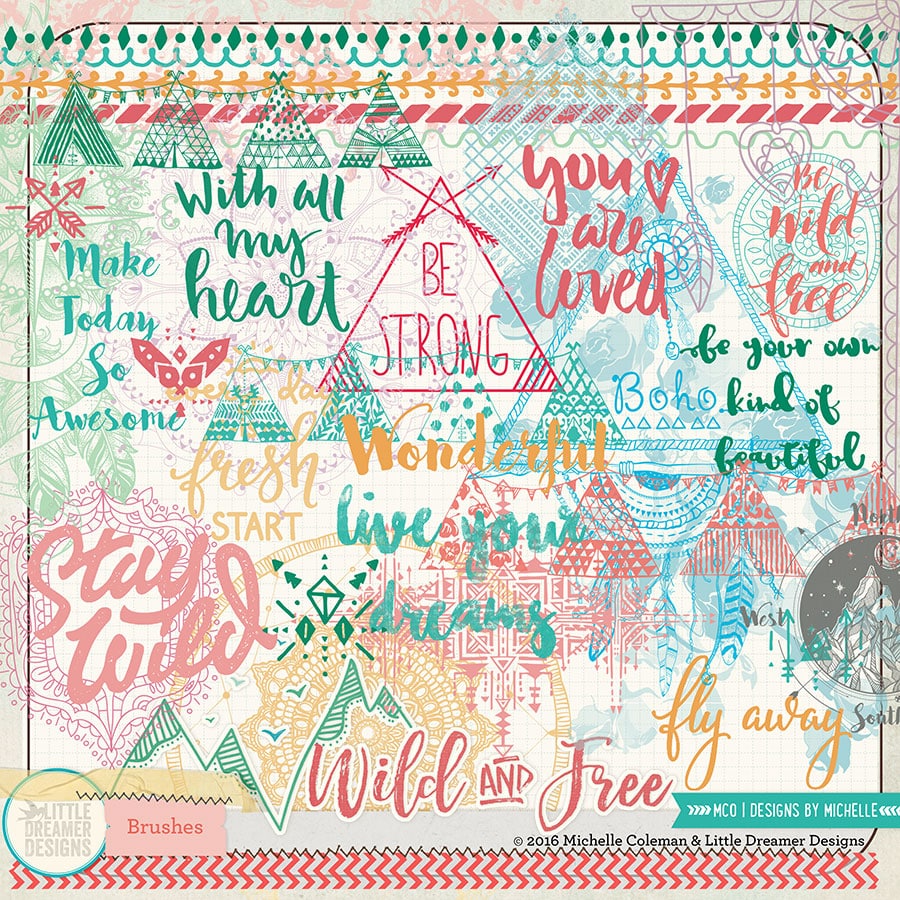 with all
my
heart
you
are
loved
Be
wild
and
free
BE
STRONG
Make
Today
So
Awesome
be your own
kind of
beautiful
Boho
fresh
START
Wonderful
live your
dreams
Stay
Wild
North
West
South
fly away
Wild AND Free
LITTLE
DREAMER
DESIGNS
Brushes
MCO | DESIGNS BY MICHELLE
© 2016 Michelle Coleman & Little Dreamer Designs